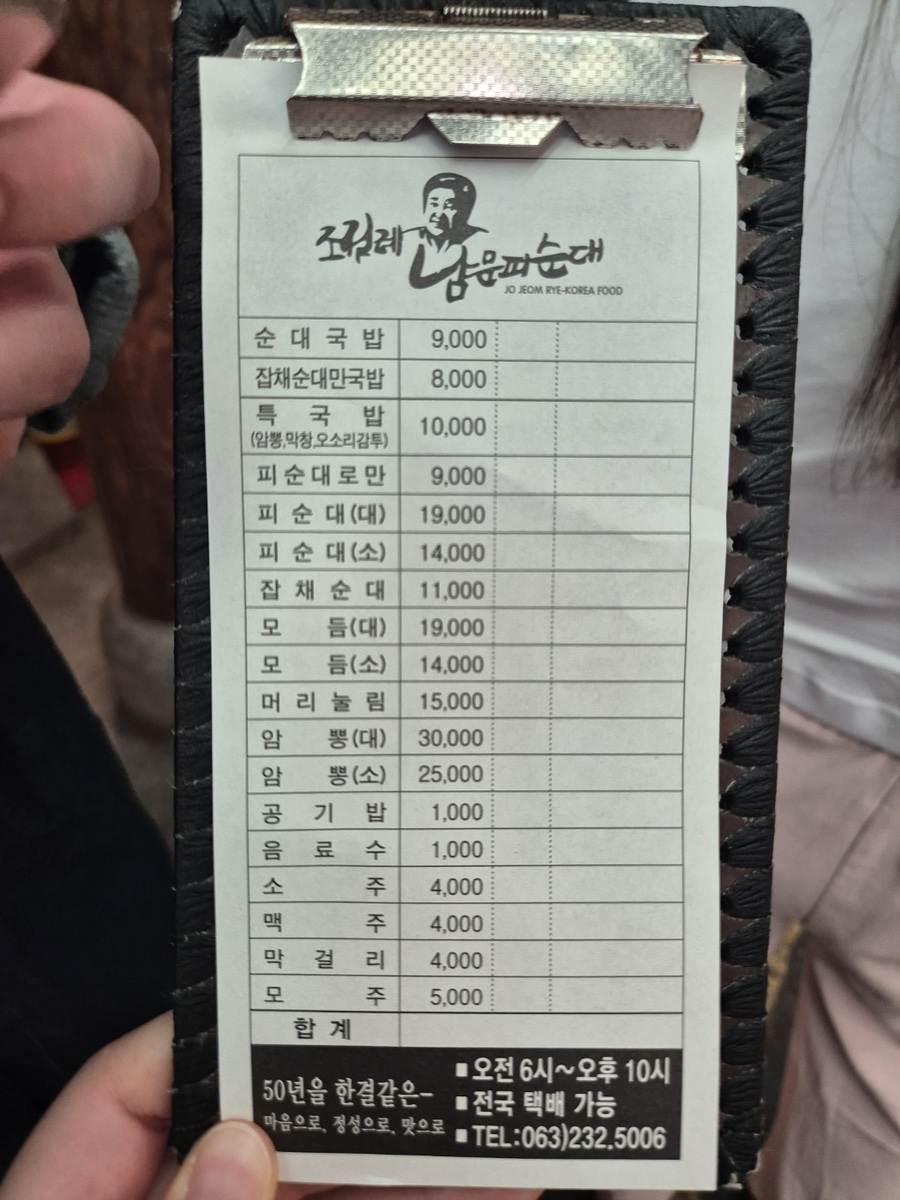 조점례
남문피순대
JO JEOM RYE-KOREA FOOD
순대국밥 9,000
잡채순대만국밥 8,000
특국밥 10,000
(암뽕,막창,오소리감투)
피순대로만 9,000
피순대(대) 19,000
피순대(소) 14,000
잡채순대 11,000
모듬(대) 19,000
모듬(소) 14,000
머리눌림 15,000
암뽕(대) 30,000
암뽕(소) 25,000
공기밥 1,000
음료수 1,000
소주 4,000
맥주 4,000
막걸리 4,000
모주 5,000
합계
50년을 한결같은-
마음으로, 정성으로, 맛으로
■오전 6시~오후 10시
■전국 택배 가능
■TEL:063)232.5006